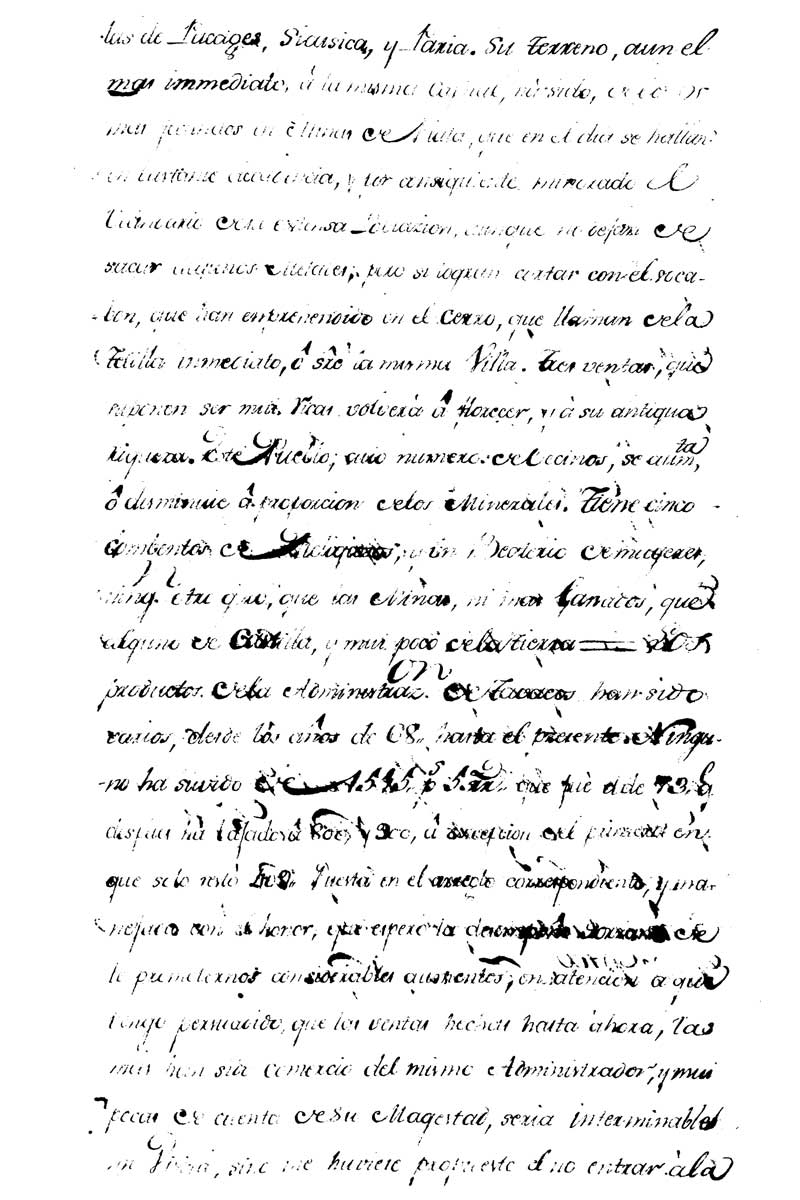 tos de Pacages, Sicasica, y Paria. Su Terreno, aun el
mas immediato, â la misma ha sido,
mas en Minas de Plata, que en el dia se hallan
en bastante decadencia, y por consiguiente minorado el
Vecindario de su extensa Poblazion, aunque no dejan de
sacar algunos Metales, pero si logran cortar con el soca-
bon, que han emprehendido en el Cerro, que llaman de la
Tetilla inmediato, ô sre la misma Villa. Tres ventas, que
suponen ser mui Ricas volverá â florecer, y â su antigua
Riqueza. Este Pueblo, cuio numero de Vecinos, se aumta,
ô disminuie â proporcion de los Minerales. Tiene cinco
Combentos de Religiosos, y un Beaterio de mugeres,
ning. otro que las Minas, ni mas Ganados, que
alguno de Castilla, y mui poco de la tierra = Los
productos de la Administrazon de Tabacos han sido
varios, desde los años de 68,, hasta el presente. Ningu-
no ha suvido de 1545 ps 5 rr. que fué el de 73. q
despues ha bajado â 800, y 900, â excepcion del primero en
que solo restó Puesta en el arreglo correspondiente, y ma-
nejada con el honor, que espero la desempeñe de
be prometernos considerables aumentos, en atencion a que
tengo persuadido, que las ventas hechas hasta ahora, las
mas han sido comercio del mismo Administrador, y mui
pocas de cuenta de Su Magestad, seria interminable
mi sino me huviese propuesto el no entrar à la